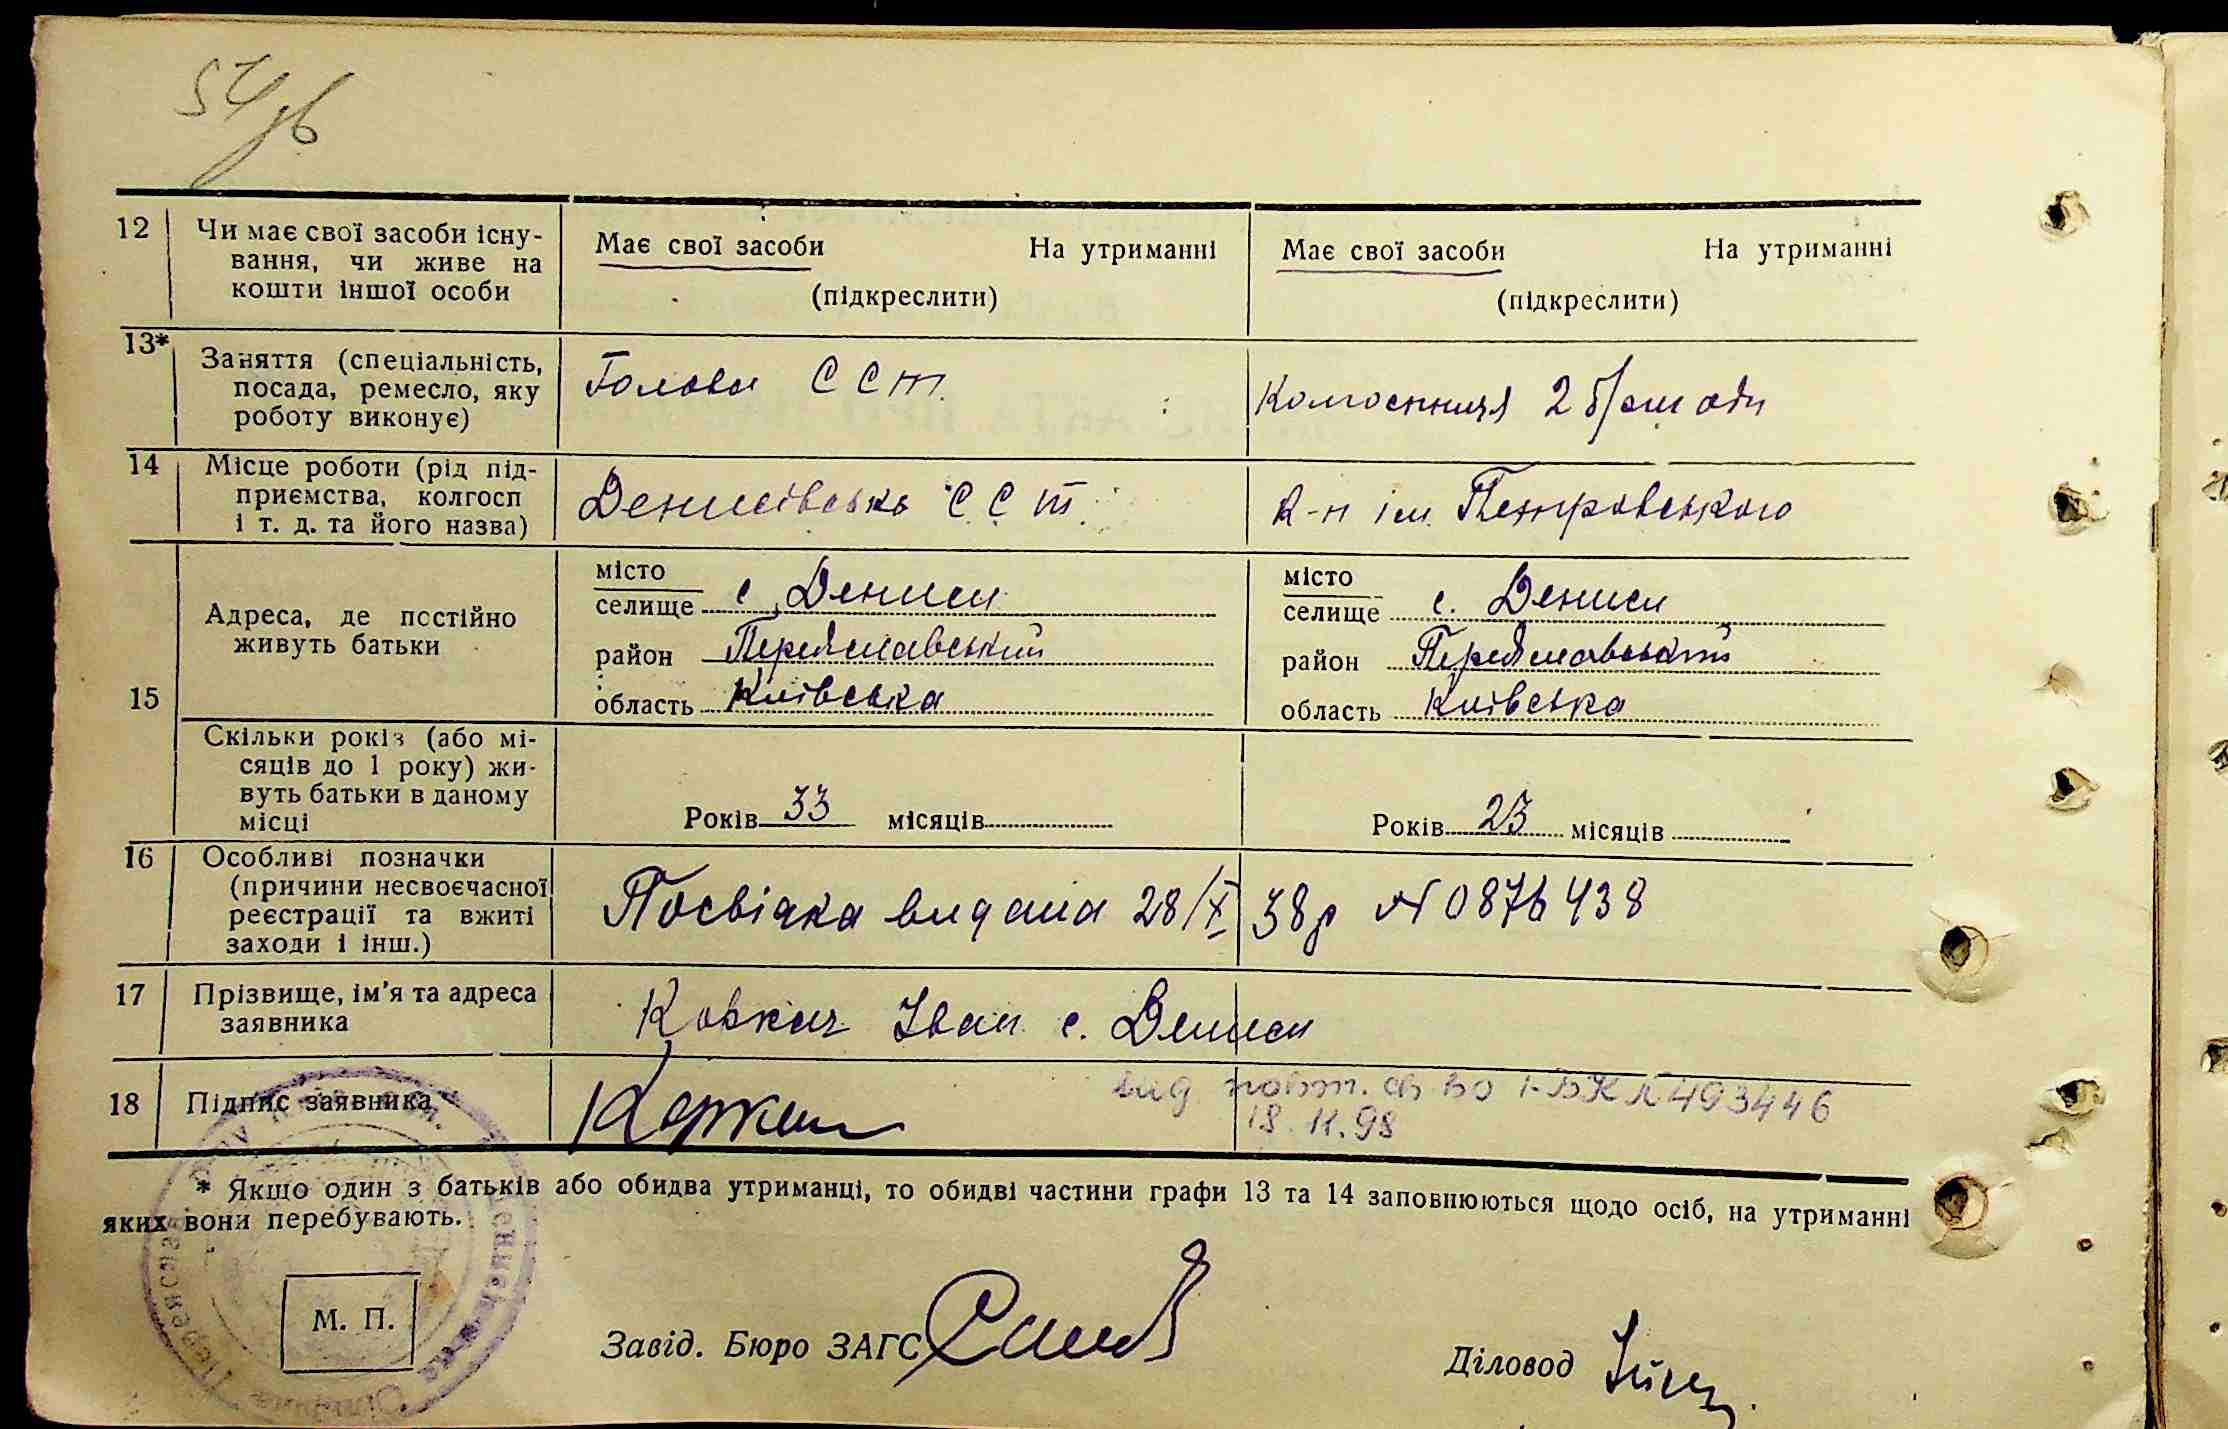 54 зв
12 Чи має свої засоби існу-
вання, чи живе на
кошти іншої особи
Має свої засоби На утриманні
(підкреслити)
Має свої засоби На утриманні
(підкреслити)
13* Заняття (спеціальність,
посада, ремесло, яку
роботу виконує)
Голова ССТ
Колгоспниця 2 бригади
14 Місце роботи (рід під-
приємства, колгосп
і т. д. та його назва)
Денисівське ССТ
к-п ім. Петровського
15
Адреса, де постійно
живуть батьки
місто
селище с. Дениси
район Переяславський
область Київська
місто
селище с. Дениси
район Переяславський
область Київська
Скільки років (або мі-
сяців до 1 року) жи-
вуть батьки в даному
місці
Років 33 місяців
Років 23 місяців
16 Особливі позначки
(причини несвоєчасної
реєстрації та вжиті
заходи і інш.)
Посвідка видана 28/X 38р № 0876438
17 Прізвище, ім'я та адреса
заявника
Іван с. Дениси
18 Підпис заявника
вид повт. св во I-БК № 493446
18.11.98
* Якщо один з батьків або обидва утриманці, то обидві частини графи 13 та 14 заповнюються щодо осіб, на утриманні
яких вони перебувають.
М. П.
Завід. Бюро ЗАГС
Діловод